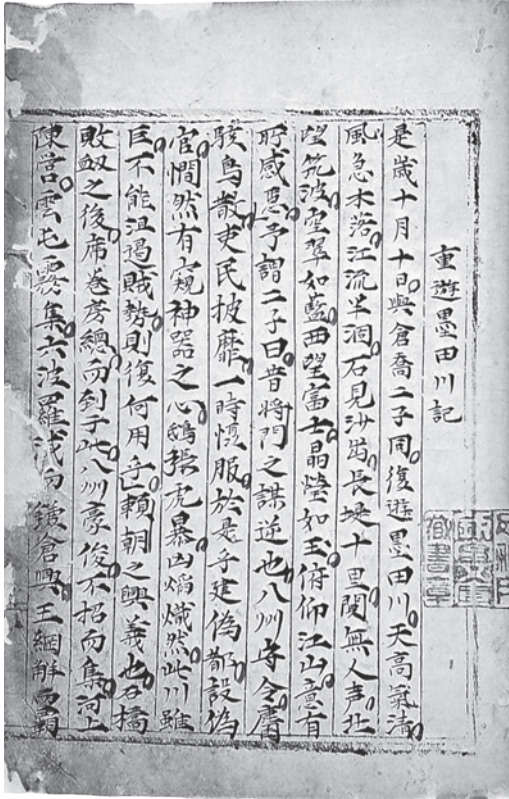 重遊墨田川記
是歳十月十日與倉喬二子同復遊墨田川天高氣清
風急木落江流半涸石見沙出長堤十里闃無人声北
望筑波空翠如藍西望富士晶瑩如玉俯仰江山意有
所感焉予謂二子曰昔将門之謀逆也八州守令麕
駭鳥散吏民披靡一時懾服於是乎建偽都設偽
官憪然有窺神器之心鴟張虎暴凶焰熾然此川雖
巨不能沮遏賊勢則復何用乎頼朝之興義也石橋
敗衂之後席巻房總而到于此八州豪俊不招而集河上
陳営雲屯霧集六波羅滅而鎌倉興王綱解而覇